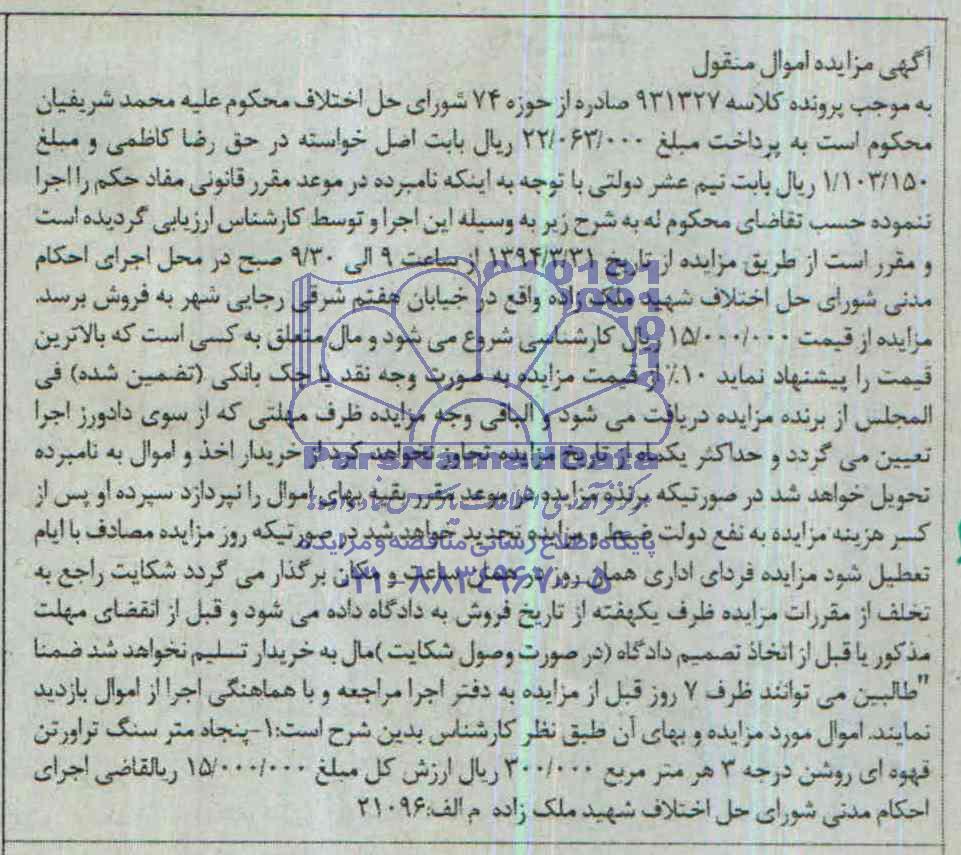 آگهی مزایده اموال منقول
به موجب پرونده کلاسه ۹۳۱۳۲۷ صادره از حوزه ۷۴ شورای حل اختلاف محکوم علیه محمد شریفیان
محکوم است به پرداخت مبلغ ۲۲/۰۶۳/۰۰۰ ریال بابت اصل خواسته در حق رضا کاظمی و مبلغ
۱/۱۰۳/۱۵۰ ریال بابت نیم عشر دولتی با توجه به اینکه نامبرده در موعد مقرر قانونی مفاد حکم را اجرا
ننموده حسب تقاضای محکوم له به شرح زیر به وسیله این اجرا و توسط کارشناس ارزیابی گردیده است
و مقرر است از طریق مزایده از تاریخ ۱۳۹۴/۳/۳۱ از ساعت ۹ الی ۹/۳۰ صبح در محل اجرای احکام
مدنی شورای حل اختلاف شهید ملک زاده واقع در خیابان هفتم شرقی رجایی شهر به فروش برسد.
مزایده از قیمت ۱۵/۰۰۰/۰۰۰ ریال کارشناسی شروع می شود و مال متعلق به کسی است که بالاترین
قیمت را پیشنهاد نماید ۱۰٪ از قیمت مزایده به صورت وجه نقد یا چک بانکی (تضمین شده) فی
المجلس از برنده مزایده دریافت می شود و الباقی وجه مزایده ظرف مهلتی که از سوی دادورز اجرا
تعیین می گردد و حداکثر یکماه از تاریخ مزایده تجاوز نخواهد کرد از خریدار اخذ و اموال به نامبرده
تحویل خواهد شد در صورتیکه برنده مزایده در موعد مقرر بقیه بهای اموال را نپردازد سپرده او پس از
کسر هزینه مزایده به نفع دولت ضبط و مزایده تجدید خواهد شد در صورتیکه روز مزایده مصادف با ایام
تعطیل شود مزایده فردای اداری همان روز در همان ساعت و مکان برگذار می گردد شکایت راجع به
تخلف از مقررات مزایده ظرف یکهفته از تاریخ فروش به دادگاه داده می شود و قبل از انقضای مهلت
مذکور یا قبل از اتخاذ تصمیم دادگاه (در صورت وصول شکایت )مال به خریدار تسلیم نخواهد شد ضمنا
"طالبین می توانند ظرف ۷ روز قبل از مزایده به دفتر اجرا مراجعه و با هماهنگی اجرا از اموال بازدید
نمایند. اموال مورد مزایده و بهای آن طبق نظر کارشناس بدین شرح است:۱-پنجاه متر سنگ تراورتن
قهوه ای روشن درجه ۳ هر متر مربع ۳۰۰/۰۰۰ ریال ارزش کل مبلغ ۱۵/۰۰۰/۰۰۰ ریالقاضی اجرای
احکام مدنی شورای حل اختلاف شهید ملک زاده م الف:۲۱۰۹۶
ParsNamadData
پایگاه اطلاع رسانی مناقصه و مزایده
۰۲۱-۸۸۳۴۹۶۷۰-۵